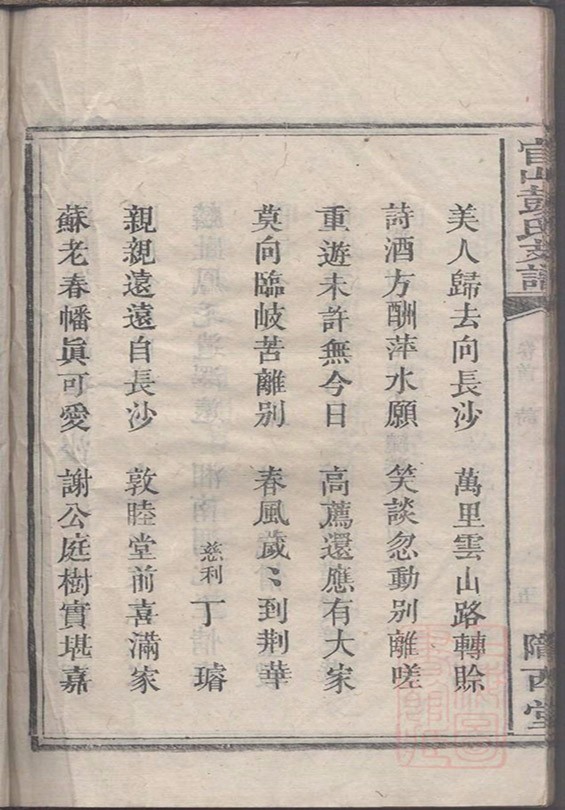 官山彭氏支譜
卷首 詩
五
隴西堂
美人歸去向長沙 萬里雲山路轉賒
詩酒方酬萍水願 笑談忽動別離嗟
重遊未許無今日 高薦還應有大家
莫向臨岐苦離別 春風歲〻到荆華
慈利 丁璿
親親遠遠自長沙 敦睦堂前喜滿家
蘇老春幡眞可愛 謝公庭樹實堪嘉